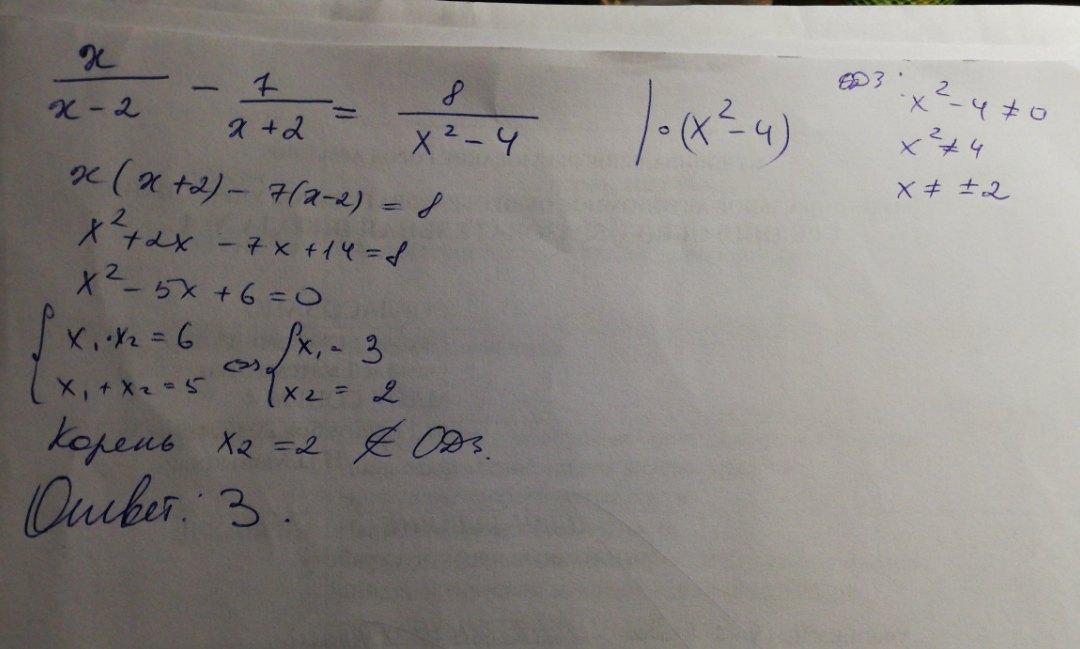 x/(x-2) - 7/(x+2) = 8/(x²-4) | · (x²-4)
ОДЗ: x²-4≠0
x²≠4
x≠ ±2
x(x+2) - 7(x-2) = 8
x²+2x - 7x+14=8
x²-5x+6=0
{ x₁·x₂=6 <=> { x₁=3
x₁+x₂=5 x₂=2
Корень x₂=2 ∉ ОДЗ.
Ответ: 3.